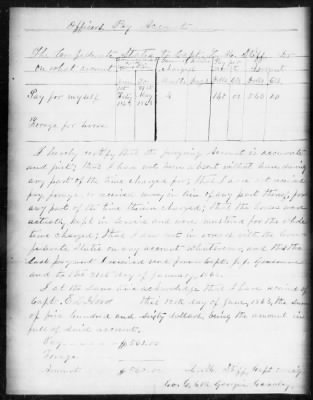 Officers Pay Account
The Confederate States to Capt. Dr.
On what account
charged
Pay for myself 4 140 00 560 00
Forage for horse
I hereby certify that the foregoing account is accurate
and just; that I have not been absent without leave during
any part of the time charged for; that I have not received
pay, forage, or received money in lieu of any part thereof, for
any part of the time therein charged; that the horses were
actually kept in service and were mustered for the whole
time charged; that I am not in arrears with the Confe-
derate States on any account whatsoever; and that the
last payment I received was from Capt.
and to the day of January, 186
I at the same time acknowledge that I have received of
Capt. this day of June, 186 the sum
of five hundred and sixty dollars, being the amount in
full of said account.
Pay $560.00
Forage
Amount $560.00 Capt
Co. Georgia Cavalry